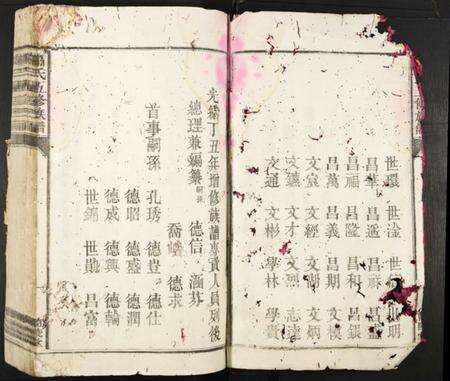 世環 世淦 世 明
昌華 昌遙 昌 昌盛
昌福 昌隆 昌和 昌鎮
昌萬 昌義 昌期 文模
文宸 文經 文湖 文炳
文蘊 文才 文烈 志達
文通 文彬 學林 學貴
光緒丁丑年增修族譜專責人員列後
總理兼編纂嗣孫 德信 涵芬
喬 德求
首事嗣孫 孔琇 德豈 德仕
德昭 德盛 德潤
德成 德興 德輪
世錦 世勛 昌富
氏五修族譜